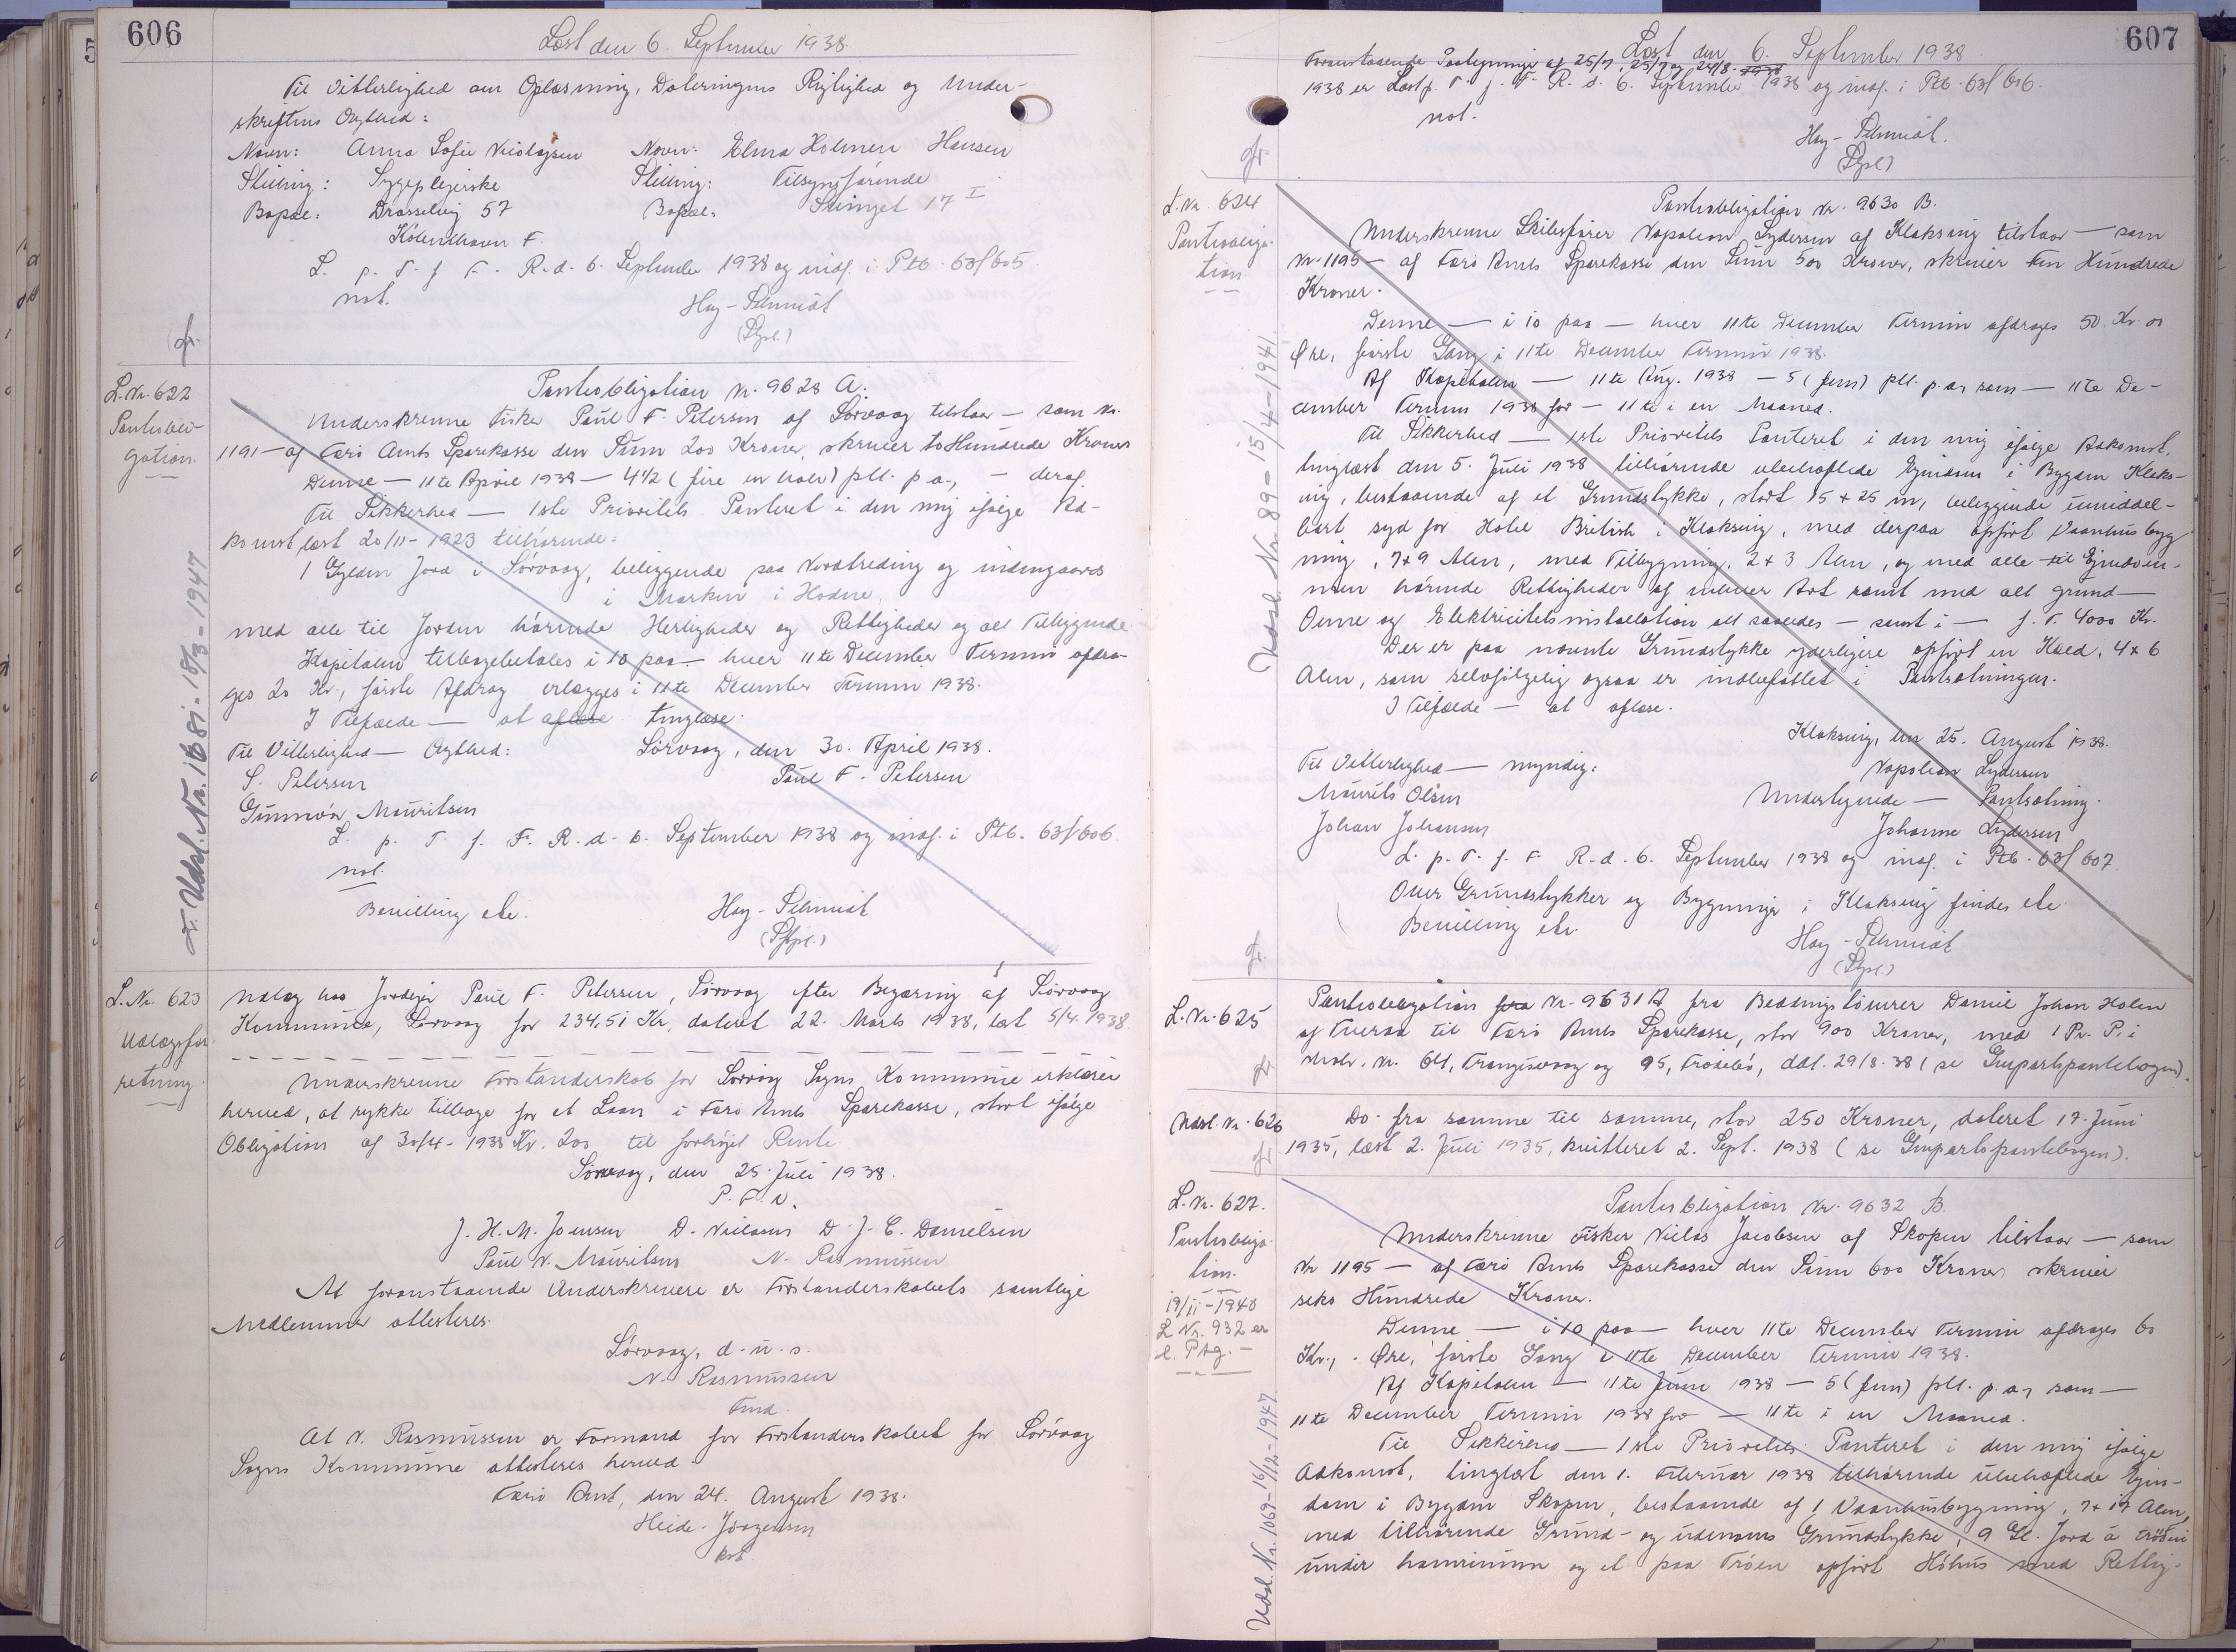 606
Læst den 6. September 1938.
Til Vitterlighed om Oplæsning, Dateringens Rigtighed og Under-
skriftens Ægthed:
Navn: Anna Sofie Nicolajsen Navn: Elma Holmen Hansen
Stilling: Sygeplejerske Stilling: Tilsynsførende
Bopæl: Drosselvej 57 Bopæl: Svinget 17 I
København F.
L. p. T. f. F. R. d. 6. September 1938 og indf. i Ptb. 63/605.
not. Hay-Schmidt
(Stpl.)
gr.
L. Nr. 622
Pantobli-
gation.
Pantobligation Nr. 9628 A.
Underskrevne Fisker Paul F. Petersen af Sørvaag tilstaar — som Nr.
1191 — af Færø Amts Sparekasse den Sum 200 Kroner, skriver to Hundrede Kroner
Denne — 11te April 1938 — 4 1/2 (fire en halv) pCt. p. a., — deraf.
Til Sikkerhed — 1ste Prioritets Panteret i den mig ifølge Ad-
komst, læst 20/11-1923 tilhørende:
1 Gylden Jord i Sørvaag, beliggende paa Nordtreding og indengaards
i Marken i Hodne,
med alle til Jorden hørende Herligheder og Rettigheder og alt Tilliggende
Kapitalen tilbagebetales i 10 paa — hver 11te December Termin afdra-
ges 20 Kr., første Afdrag erlægges i 11te December Termin 1938.
I Tilfælde — at aflæse tinglæse.
Til Vitterlighed — Ægthed: Sørvaag, den 30. April 1938.
S. Petersen Paul F. Petersen
Gunnvör Mauritsen
L. p. T. f. F. R. d. 6. September 1938 og indf. i Ptb. 63/606
not.
Bevilling etc. Hay-Schmidt
(Stpl.)
Udsl. Nr. 1681-18/3-1947
L. Nr. 623
Udlægsfor-
retning.
Udlæg hos Jordejer Paul F. Petersen, Sørvaag efter Begæring af Sørvaag
Kommune, Sørvaag for 234,51 Kr, dateret 22. Marts 1938, læst 5/4. 1938
Underskrevne Forstanderskab for Sørvaag Sogns Kommune erklærer
herved, at rykke tilbage for et Laan i Færø Amts Sparekasse, stort ifølge
Obligation af 30/4-1938 Kr. 200 til forhøjet Rente.
Sørvaag, den 25. Juli 1938.
P. F. V.
J. H. M. Joensen D. Nielsen D. J. C. Danielsen
Paul N. Mauritsen N. Rasmussen
At foranstaaende Underskrivere er Forstanderskabets samtlige
Medlemmer attesteres.
Sørvaag, d. u. s.
N. Rasmussen
Fmd.
At N. Rasmussen er Formand for Forstanderskabet for Sørvaag
Sogns Kommune attesteres herved.
Færø Amt, den 24. August 1938.
Heide-Jørgensen
kst.
607
Læst den 6. September 1938
Foranstaaende Paategninger af 25/7, 25/7 og 24/8. 1938
1938 er Læst p. T. f. F. R. d. 6. September 1938 og indf. i Ptb. 63/606.
not.
Hay-Schmidt.
(Stpl.)
gr.
L. Nr. 624
Pantobliga-
tion.
Pantobligation Nr. 9630 B.
Underskrevne Skibsfører Napoleon Lydersen af Klaksvig tilstaar — som
Nr. 1195 — af Færø Amts Sparekasse den Sum 500 Kroner, skriver Fem Hundrede
Kroner.
Denne — i 10 paa — hver 11te December Termin afdrages 50 Kr. 00
Øre, første Gang i 11te December Termin 1938.
Af Kapitalen — 11te Aug. 1938 — 5 (fem) pCt. p. a., som — 11te De-
cember Termin 1938 for — 11te i en Maaned.
Til Sikkerhed — 1ste Prioritets Panteret i den mig ifølge Adkomst,
tinglæst den 5. Juli 1938 tilhørende ubehæftede Ejendom i Bygden Klaks-
vig, bestaaende af et Grundstykke, stort 15 x 25 m, beliggende umiddel-
bart syd for Hotel British i Klaksvig, med derpaa opført Vaanhusbyg
ning, 7x9 Alen, med Tilbygning, 2 x 3 Alen, og med alle til Ejendom-
men hørende Rettigheder af enhver Art samt med alt grund —
Ovne og Elektricitetsinstallation alt saaledes — samt i — f. T. 4000 Kr.
Der er paa nævnte Grundstykke yderligere opført en Hjed, 4x6
Alen, som selvfølgelig ogsaa er indbefattet i Pantsætningen.
I Tilfælde — at aflæse.
Klaksvig, den 25. August 1938.
Til Vitterlighed — myndig: Napoleon Lydersen
Maurits Olsen Undertegnede — Pantsætning.
Johan Johansen Johanne Lydersen
L. p. T. f. F. R. d. 6. September 1938 og indf. i Ptb. 63/607.
Over Grundstykker og Bygninger i Klaksvig findes etc.
Bevilling etc.
Hay-Schmidt
(Stpl.)
Udsl. Nr. 89-15/4-1941
gr.
L. Nr. 625
Pantobligation fra Nr. 9631 A fra Beddingstømrer Daniel Johan Holm
af Tveraa til Færø Amts Sparekasse, stor 900 Kroner, med 1 Pr. P. i
Matr. Nr. 64, Trangisvaag og 95, Froðebø, ddt. 29/8. 38 (se Genpartspantebogen).
gr.
Udsl. Nr. 626
Do. fra samme til samme, stor 250 Kroner, dateret 17. Juni
1935, læst 2. Juli 1935, kvitteret 2. Sept. 1938 (se Genpartspantebogen).
gr.
L. Nr. 627.
Pantobliga-
tion.
19/11-1940
L Nr. 932 er
l. Ptg. —
Pantobligation Nr. 9632 B.
Underskrevne Fisker Niclas Jacobsen af Skopun tilstaar — som
Nr 1195 — af Færø Amts Sparekasse den Sum 600 Kroner skriver
seks Hundrede Kroner.
Denne — i 10 paa — hver 11te December Termin afdrages 60
Kr., - Øre, første Gang i 11te December Termin 1938.
Af Kapitalen — 11te Juni 1938 — 5 (fem) pCt. p. a., som —
11te December Termin 1938 for — 11te i en Maaned.
Til Sikkerhed — 1ste Prioritets Panteret i den mig ifølge
Adkomst, tinglæst den 1. Februar 1938 tilhørende ubehæftede Ejen-
dom i Bygden Skopun, bestaaende af 1 Vaanhusbygning, 7x17 Alen,
med tilhørende Grund- og udenoms Grundstykke, 9 Gl. Jord á Trøðni
undir hamrinum og et paa Trøen opført Høhus med Rettig-
Udsl. Nr. 1069-16/12-1947